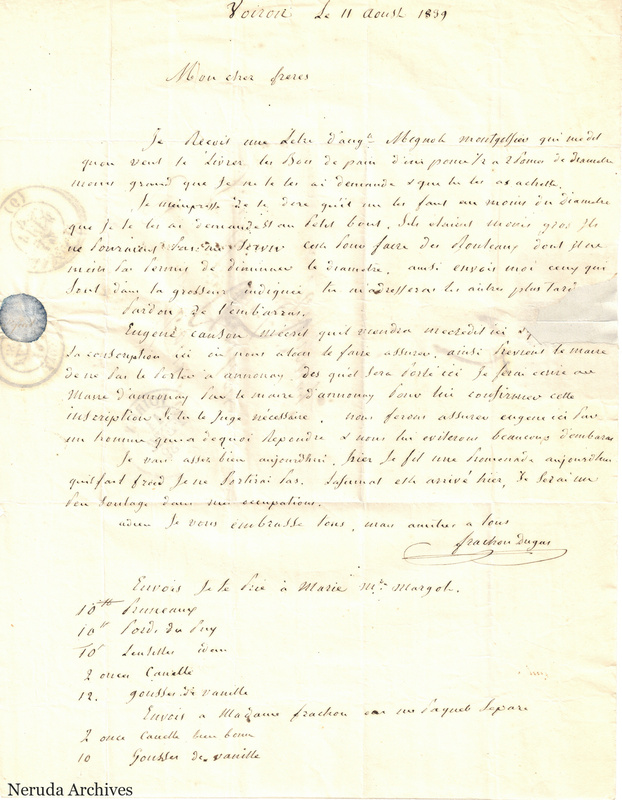 Voiron Le 11 Aoust 1839
Mon cher freres
Je Reçois une Letre d'augte Mignot montgolfier qui me dit
quon vent te Livrer les Bois de pain d'un pouce 1/2 a 2 Pouces de diametre
moins grand que Je ne te les ai demandé & que tu les as achetté.
Je mempresse de te dire quil les faut au moins du diametre
que Je te les ai demandés au Petit bout. Sils étaient moins gros Ils
ne Pouraient Pas me Servir cest Pour faire des Rouleaux dont Il ne
mest Pas Permis de diminuer le diametre. ausi envois moi ceux qui
Sont dans la grosseur indiquée tu adresseras les autres plus tard
Pardon de l'embarras.
Eugene canson m'écrit quil viendra mecredit ici
Sa conscription ici où nous alons le faire assurer. ainsi Previens le maire
de ne Pas le Porter a annonay, des quil Sera Porté ici Je ferai écrire au
Maire d'annonay Par le maire d'annonay Pour lui confirmer cette
inscription Si tu le Juge nécessaire. nous ferons assurer eugene ici Par
un homme qui a de quoi Repondre & nous lui eviterons beaucoup d'embaras
Je vais assez bien aujourdhui, hier Je fit une Promenade aujourdhui
quil fait froid Je ne Sortirai Pas. est arrivé hier, Je Serai un
Peu Soulagé dans mes occupations.
adieu Je vous embrasse tous, mes amities a tous
frachon Dugas
Envois Je te Prie à Marie Mlle Margot.
10 tt Pruneaux
10 tt Poids du Puy
10 Lentilles idem
2 onces Canelle
12. gousses de vanille
Envois a Madame frachon un Paquet Separé
2 once Canelle bien bonne
10 Gousses de vanille
Neruda Archives